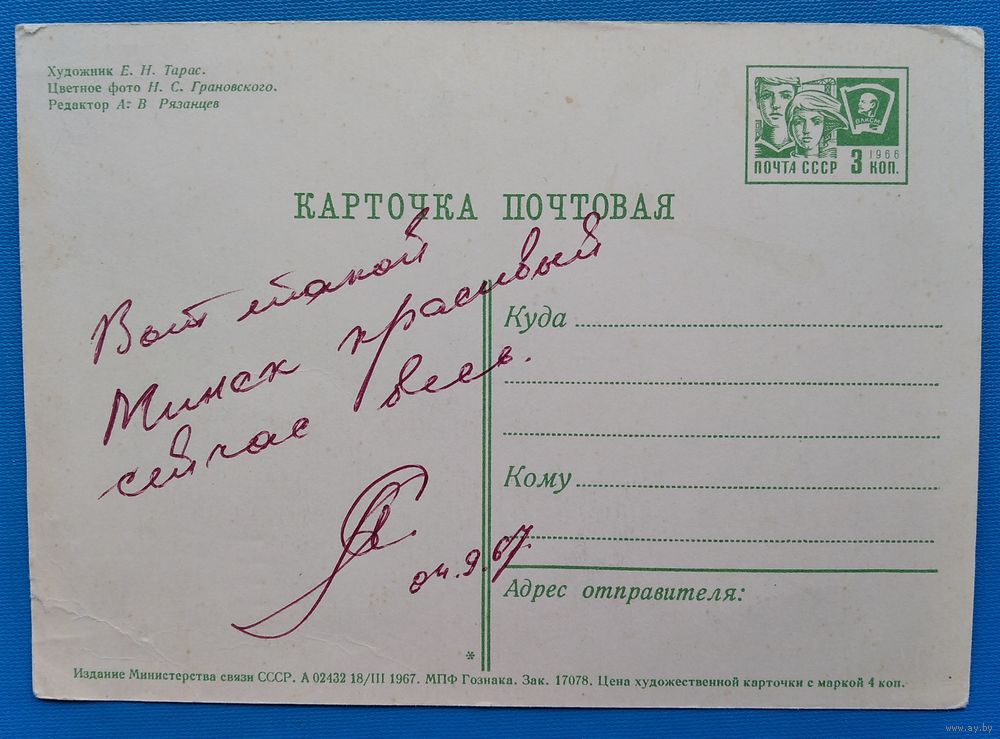 Художник Е. Н. Тарас.
Цветное фото Н. С. Грановского.
Редактор А. В Рязанцев
ВЛКСМ
1966
ПОЧТА СССР 3 КОП.
КАРТОЧКА ПОЧТОВАЯ
Вот такой
Минск красивый
сейчас весь.
04.9.67.
Куда
Кому
Адрес отправителя:
*
Издание Министерства связи СССР. А 02432 18/III 1967. МПФ Гознака. Зак. 17078. Цена художественной карточки с маркой 4 коп.
www.ay.by